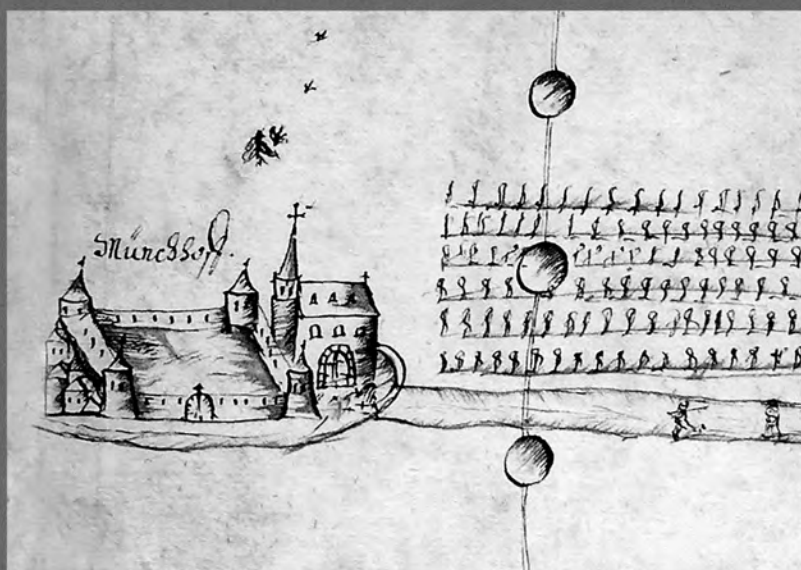 Münchhoff.